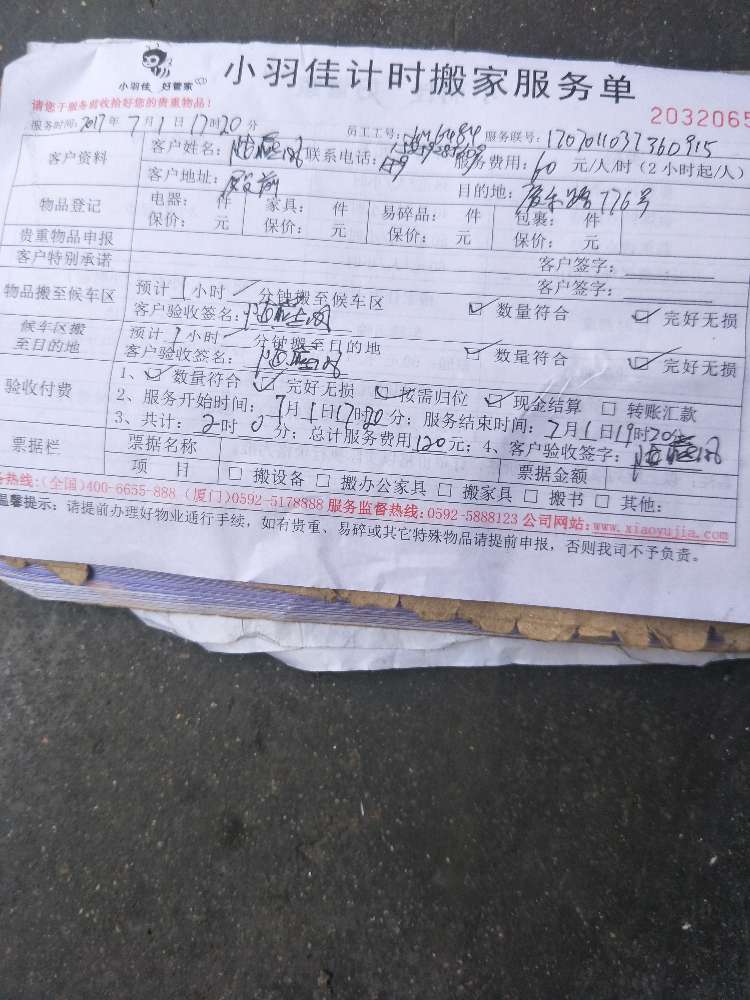 小羽佳 好管家
小羽佳计时搬家服务单
请您于服务前收拾好您的贵重物品！
2032065
服务时间：2017年7月1日17时20分 员工工号： 服务联号：1707011037360915
客户资料 客户姓名： 联系电话： 服务费用：60元/人/时（2小时起/人）
客户地址： 目的地： 776号
物品登记 电器： 件 家具： 件 易碎品： 件 包裹： 件
保价： 元 保价： 元 保价： 元 保价： 元
贵重物品申报
客户特别承诺 客户签字：
物品搬至候车区 预计1小时/分钟搬至候车区 客户签字：
客户验收签名： ☑ 数量符合 ☑ 完好无损
候车区搬至目的地 预计1小时/分钟搬至目的地
客户验收签名： ☑ 数量符合 ☑ 完好无损
验收付费 1、☑ 数量符合 ☑ 完好无损 ☑ 按需归位 ☑ 现金结算 □ 转账汇款
2、服务开始时间：7月1日17时20分；服务结束时间：7月1日19时20分；
3、共计：2时0分；总计服务费用120元；4、客户验收签字：
票据栏 票据名称 票据金额
项 目 □ 搬设备 □ 搬办公家具 □ 搬家具 □ 搬书 □ 其他：
务热线：(全国)400-6655-888 (厦门)0592-5178888 服务监督热线：0592-5888123 公司网站：www.xiaoyujia.com
温馨提示：请提前办理好物业通行手续，如有贵重、易碎或其它特殊物品请提前申报，否则我司不予负责。